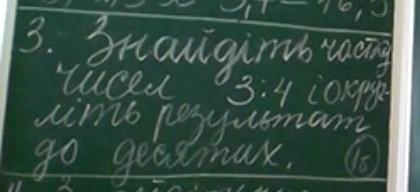 3. Знайдіть частку
чисел 3:4 і округ-
літь результат
до десятих. (1б)